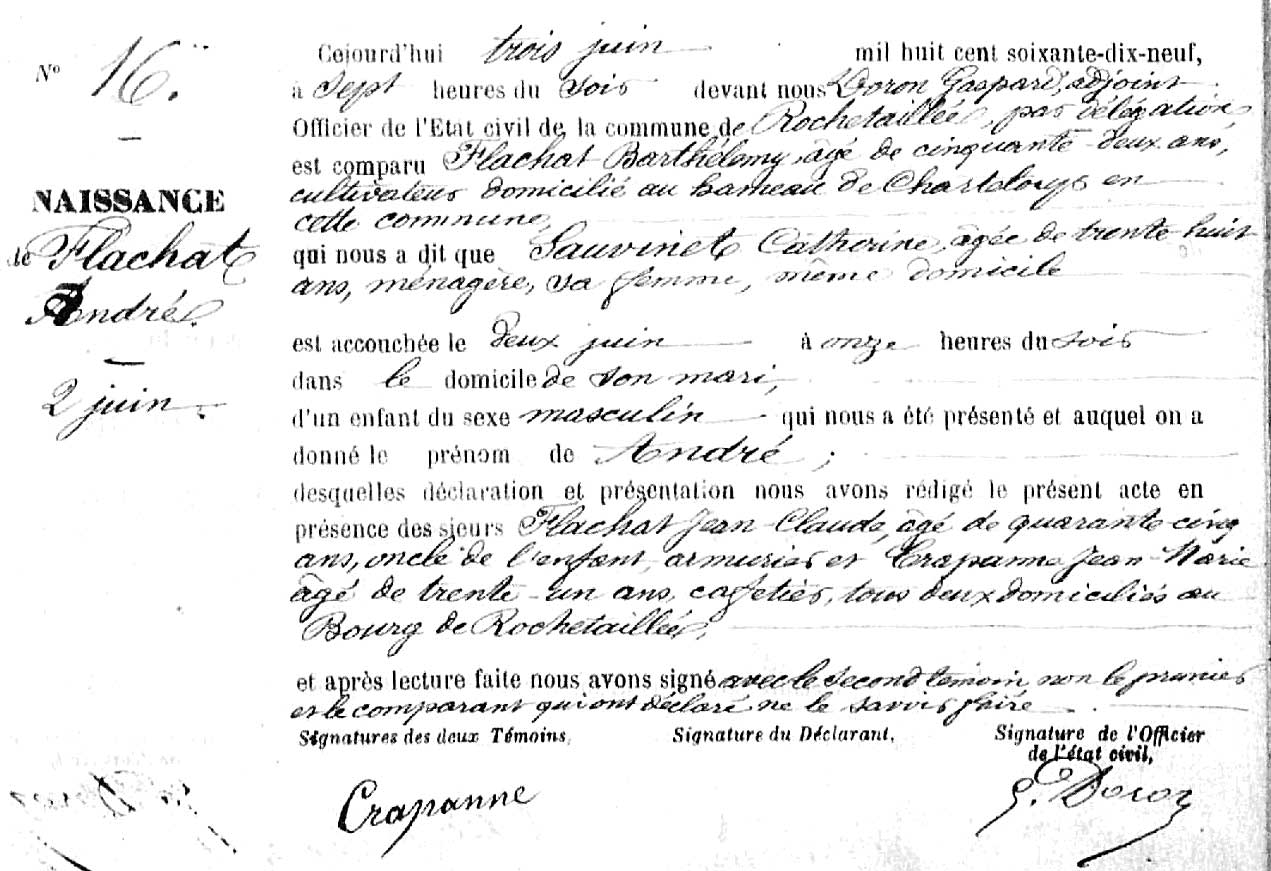 N° 16.
NAISSANCE
de Flachat
André.
2 juin.
Cejourd'hui trois juin mil huit cent soixante-dix-neuf,
à sept heures du soir devant nous Doron Gaspard, adjoint
Officier de l'Etat civil de la commune de Rochetaillée, par délégation
est comparu Flachat Barthélemy, âgé de cinquante-deux ans,
cultivateur domicilié au hameau de en
cette commune,
qui nous a dit que Sauvinet Catherine, âgée de trente huit
ans, ménagère, sa femme, même domicile
est accouchée le deux juin à onze heures du soir
dans le domicile de son mari,
d'un enfant du sexe masculin qui nous a été présenté et auquel on a
donné le prénom de André ;
desquelles déclaration et présentation nous avons rédigé le présent acte en
présence des sieurs Flachat Jean-Claude, âgé de quarante-cinq
ans, oncle de l'enfant, armurier et Crapanne Jean-Marie
âgé de trente-un ans, cafetier, tous deux domiciliés au
Bourg de Rochetaillée,
et après lecture faite nous avons signé avec le second témoin, non le premier
et le comparant qui ont déclaré ne le savoir faire.
Signatures des deux Témoins, Signature du Déclarant, Signature de l'Officier
de l'état civil,
Crapanne G. Doron